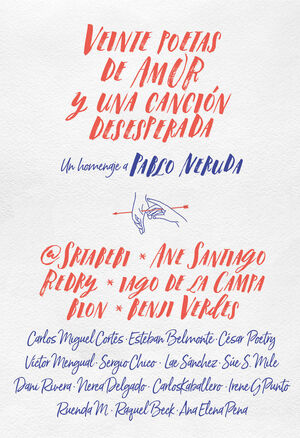 VEINTE POETAS
DE AMOR
Y UNA CANCIÓN
DESESPERADA
Un homenaje a PABLO NERUDA
@SRTABEBI * ANE SANTIAGO
REDRY * IAGO DE LA CAMPA
BLON * BENJI VERDES
Carlos Miguel Cortés · Esteban Belmonte · César Poetry
Víctor Mengual · Sergio Chico · Lae Sánchez · Sue S. Mile
Dani Rivera · Nerea Delgado · CarlosKaballero · Irene G Punto
Ruenda M. · Raquel Beck · Ana Elena Pena